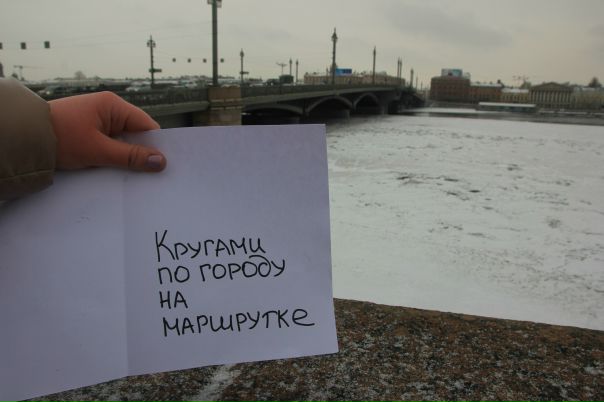 Кругами
по городу
на
маршрутке